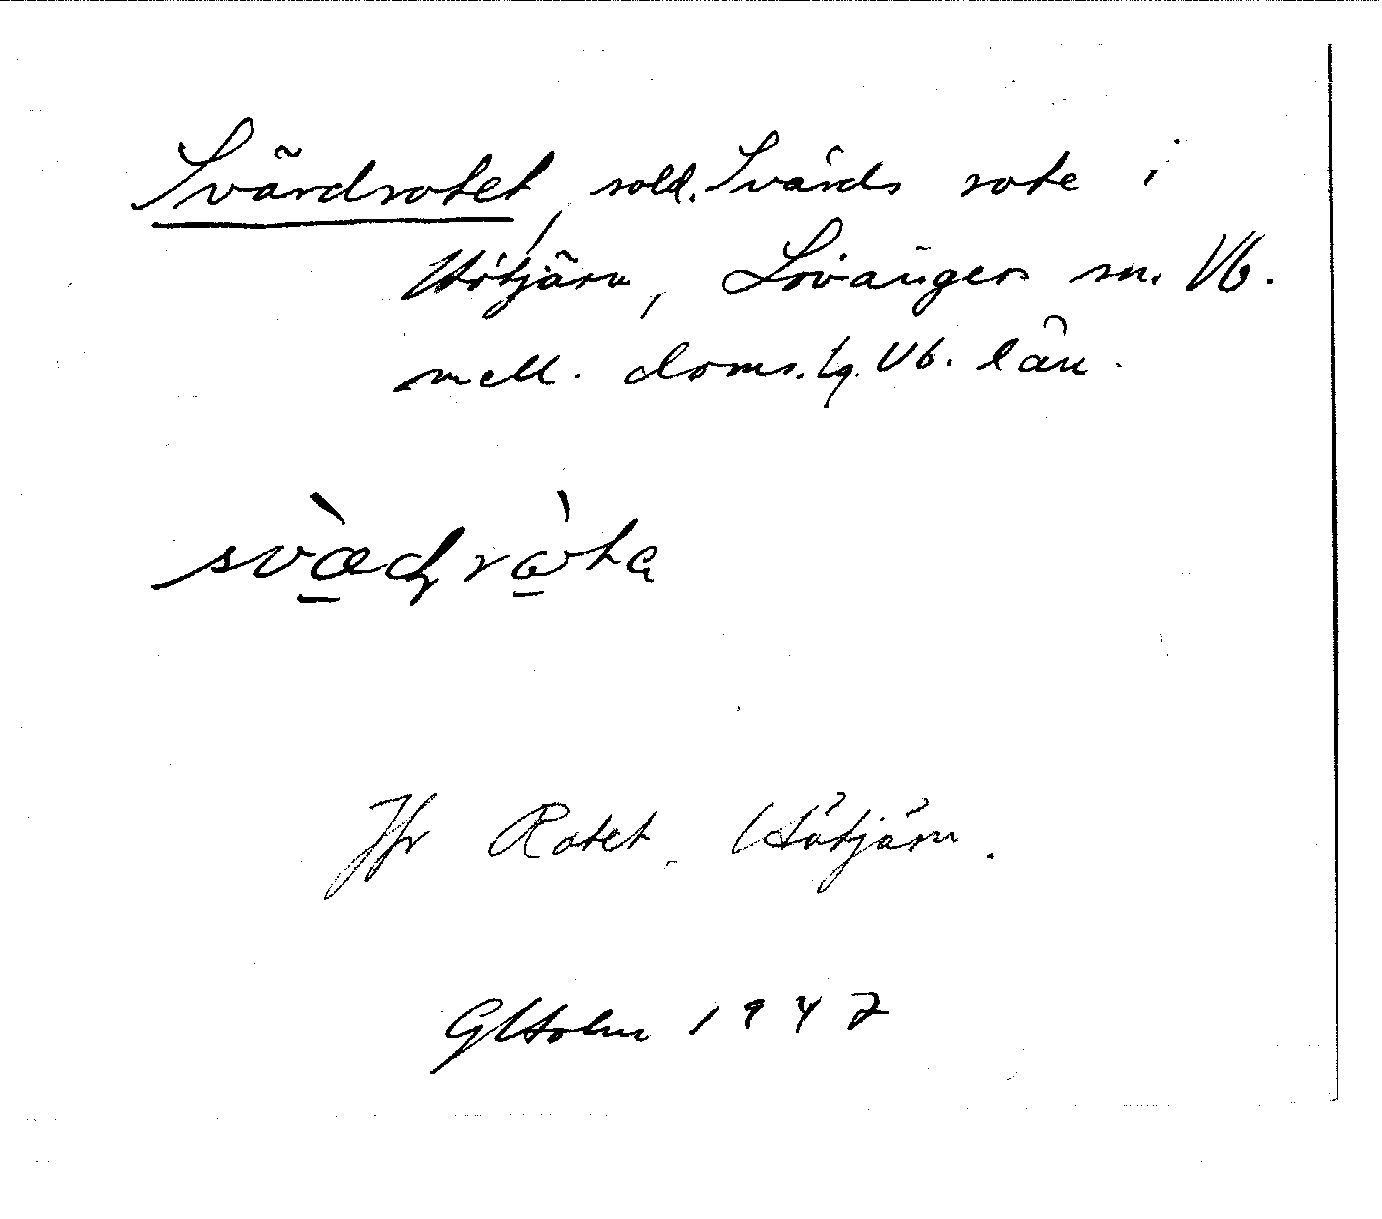 Svärdrotet, sold. Svärds rote i
Hötjärn, Lövånger sn. Vb.
mell. doms. tg. Vb. län.
svæ̀ḏròta
Jfr Rotet, Hötjärn.
GHolm 1947